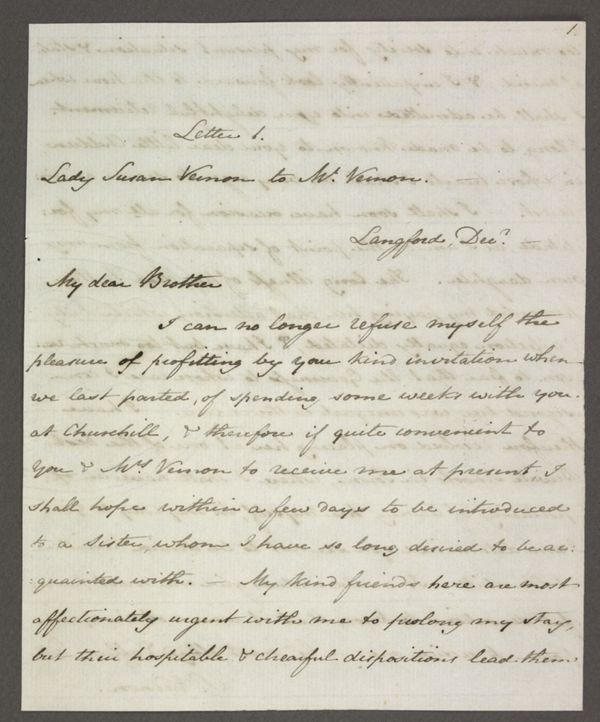 1.
Letter 1.
Lady Susan Vernon to Mr. Vernon. —
Langford, Decr. —
My dear Brother
I can no longer refuse myself the
pleasure of profitting by your kind invitation when
we last parted, of spending some weeks with you
at Churchill, & therefore if quite convenient to
you & Mrs Vernon to receive me at present, I
shall hope within a few days to be introduced
to a Sister, whom I have so long desired to be ac:
:quainted with. — My kind friends here are most
affectionately urgent with me to prolong my stay,
but their hospitable & chearful dispositions lead them